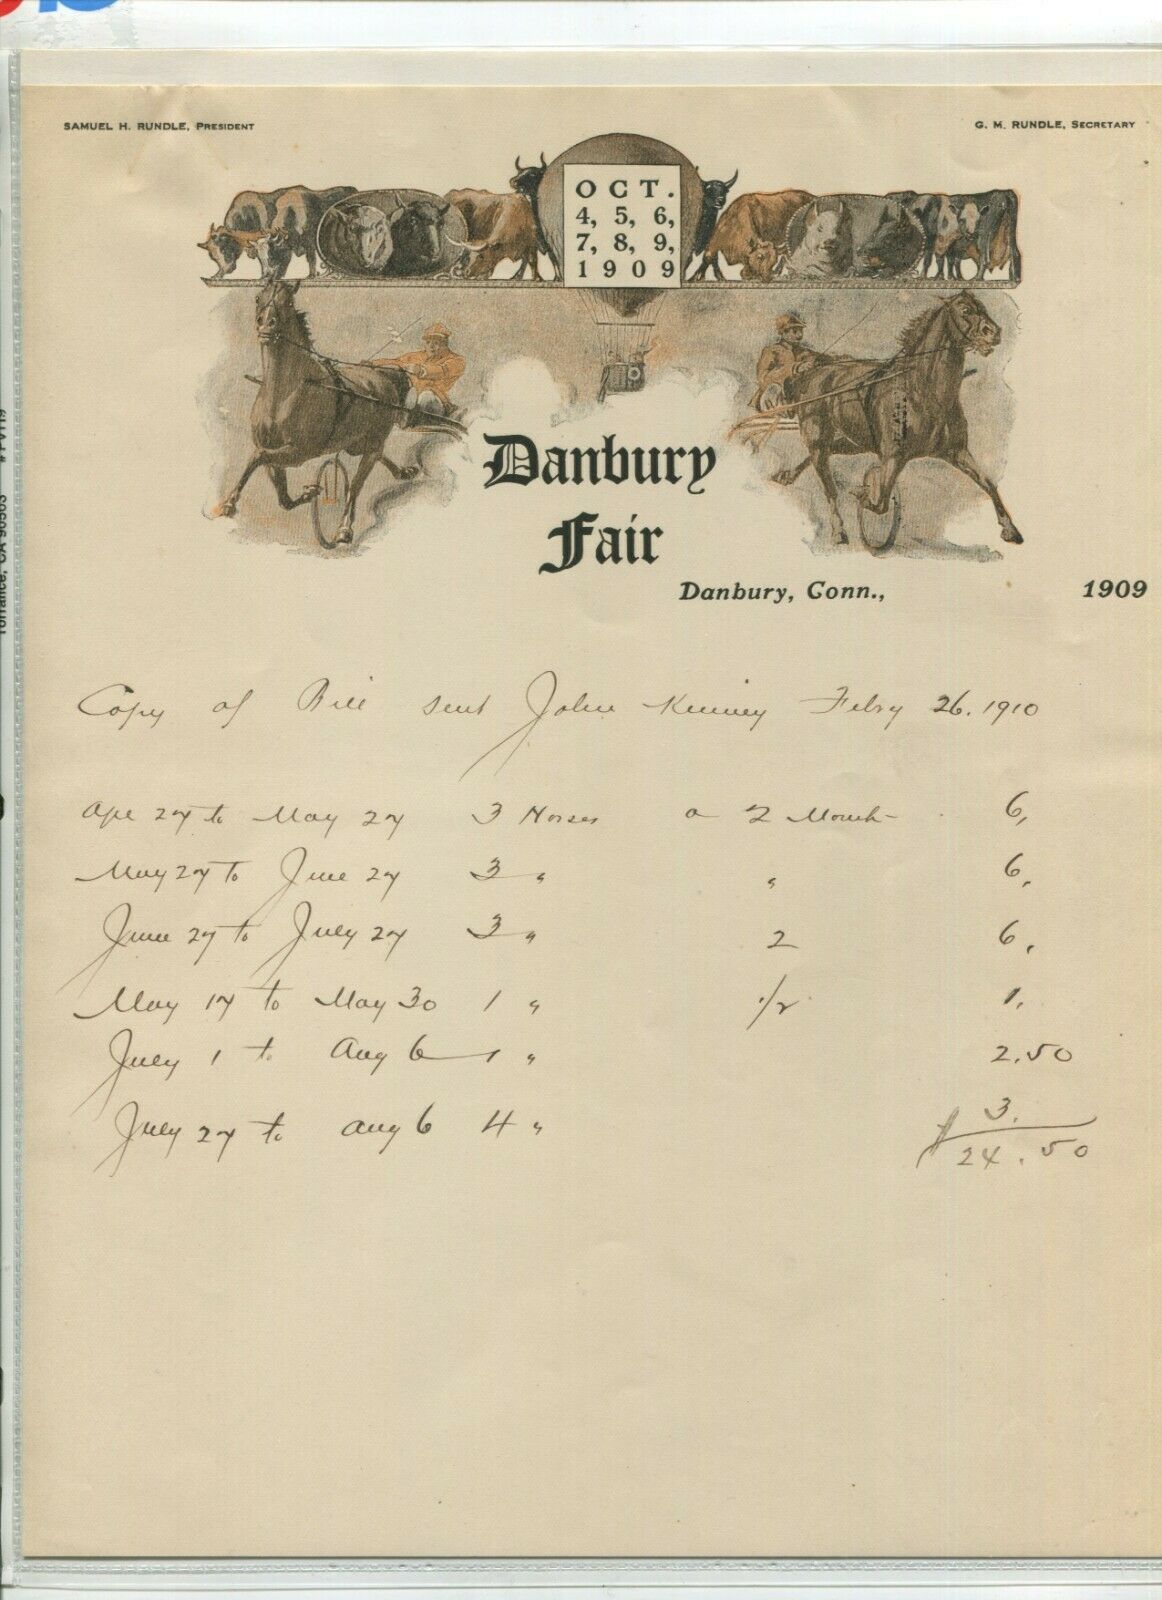 SAMUEL H. RUNDLE, PRESIDENT
G. M. RUNDLE, SECRETARY
OCT.
4, 5, 6,
7, 8, 9,
1909
Danbury
Fair
Danbury, Conn., 1909
Copy of Bill sent John Kinney Febry 26. 1910
Apr 27 to May 27 3 Horses a 2 Month 6,
May 27 to June 27 3 " " 6,
June 27 to July 27 3 " 2 6,
May 17 to May 30 1 " 1/2 1,
July 1 to Aug 6 1 " 2.50
July 27 to Aug 6 4 " 3.
$24.50
Torrance, CA 90503 #PV119